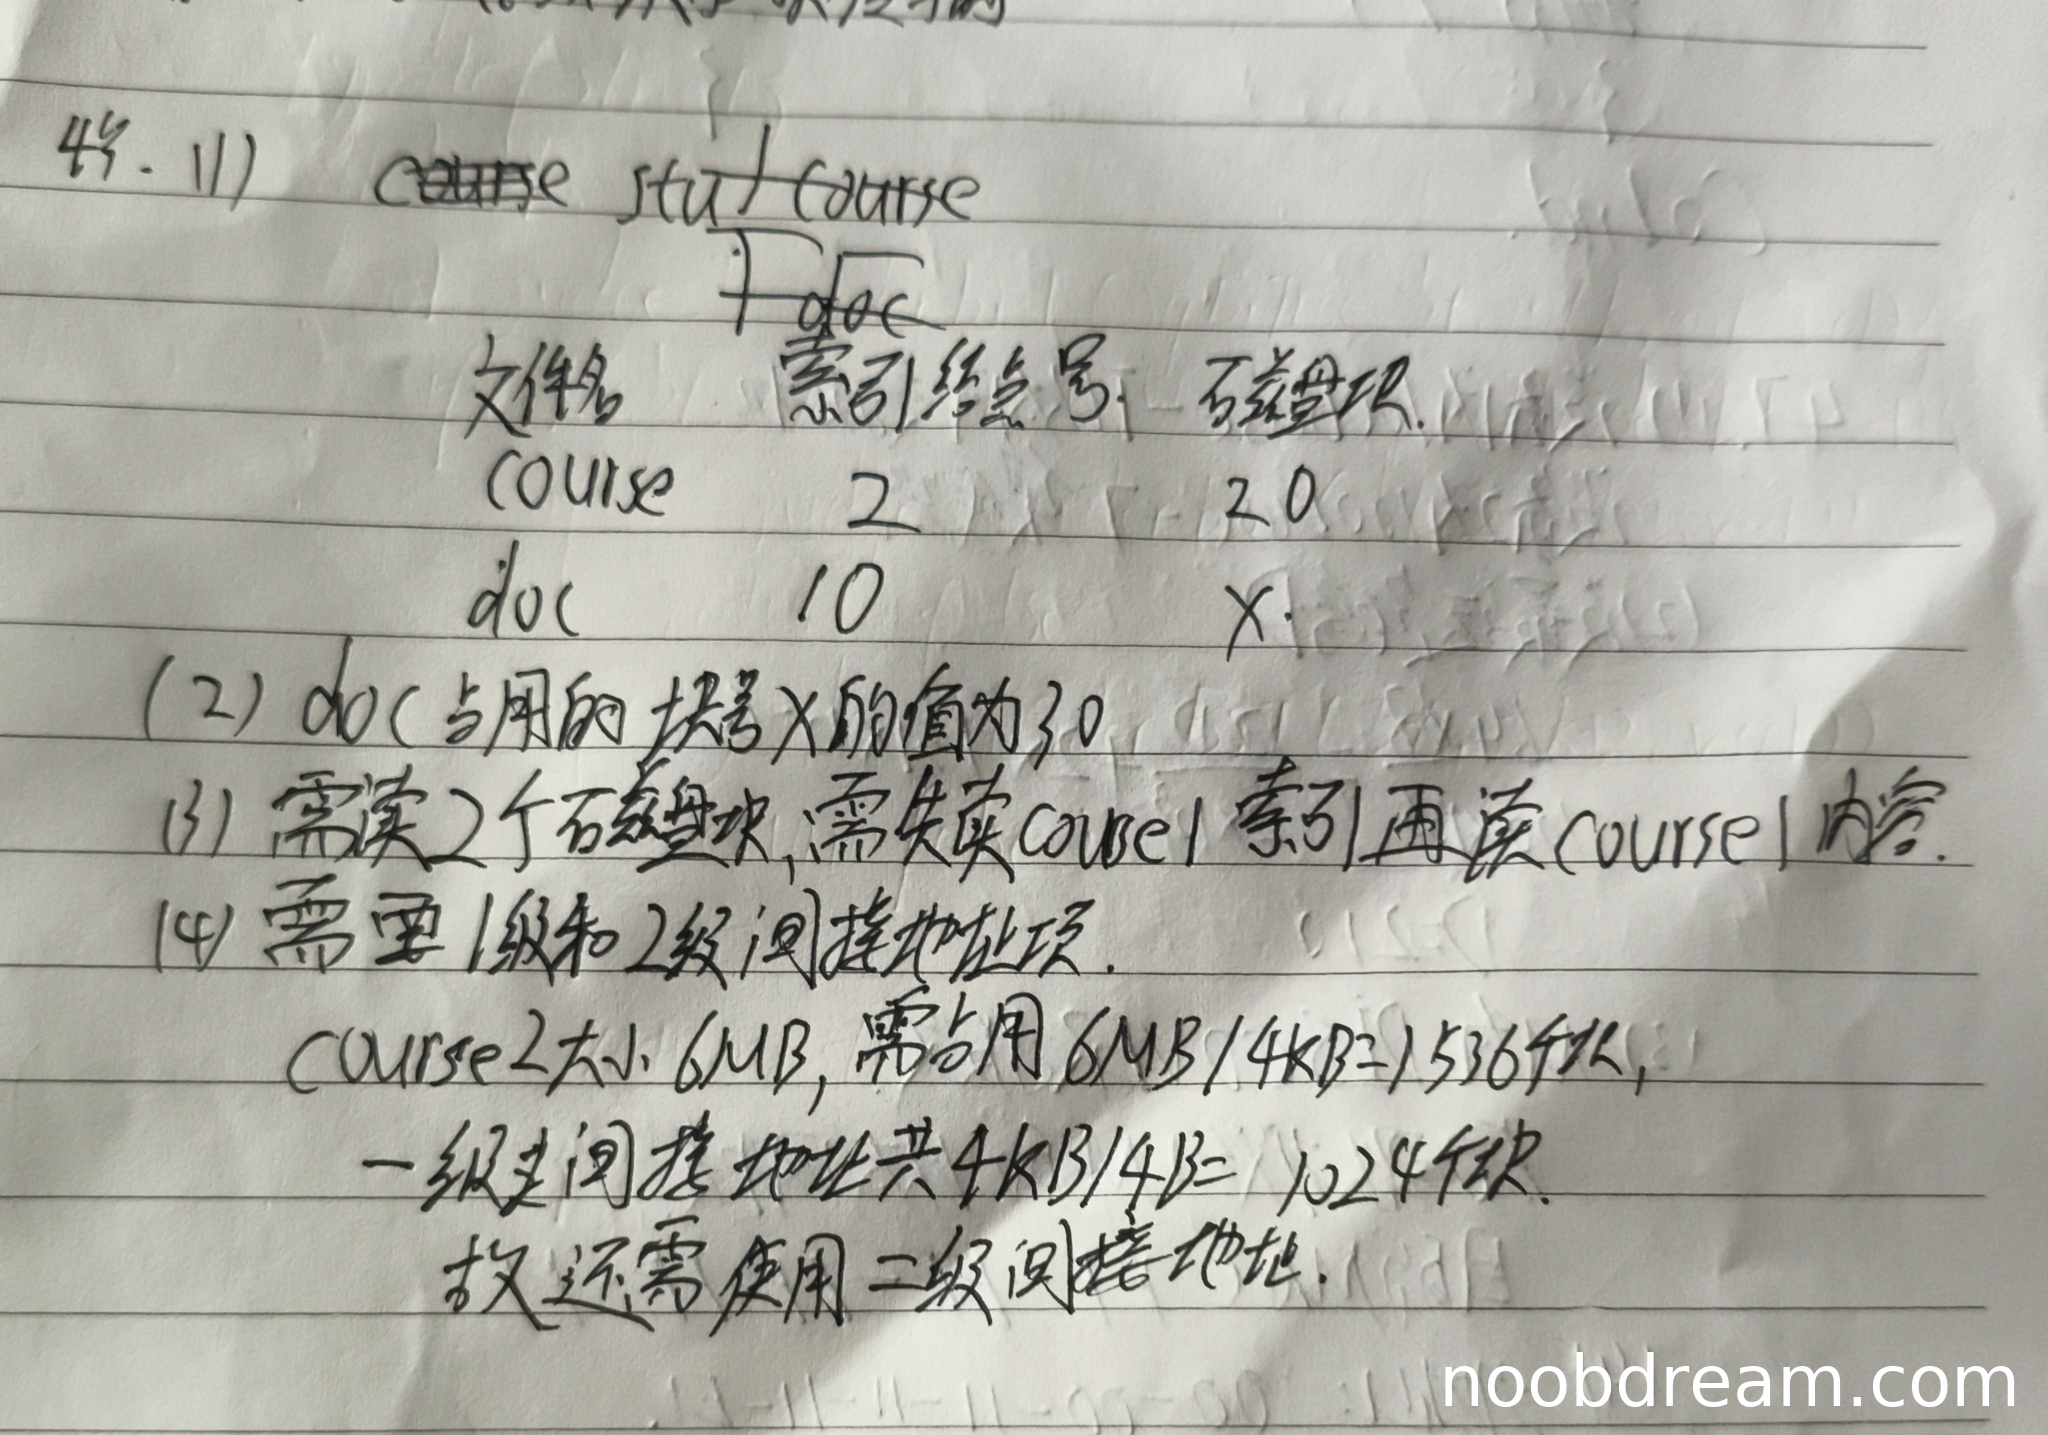 45. (1) course stu/course
doc
文件名 索引结点号 磁盘块.
course 2 20
doc 10 X.
(2) doc占用的块号X的值为30
(3) 需读2个磁盘块,需先读course1 索引再读course1内容.
(4) 需要1级和2级间接地址项.
course2大小6MB,需占用6MB/4KB=1536个块,
一级间接地址共4KB/4B= 1024个块.
故还需使用二级间接地址.
noobdream.com